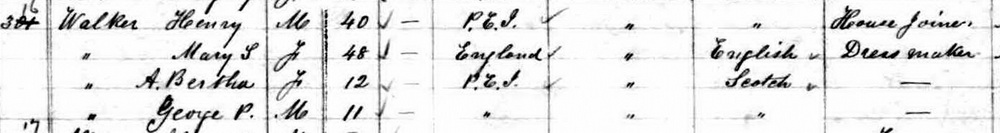 16
Walker Henry M 40 — P.E.I. " " House Joiner
" Mary S F 48 — England " English Dress maker
" A. Bertha F 12 — P.E.I. " Scotch —
" George P. M 11 — " " " —
17